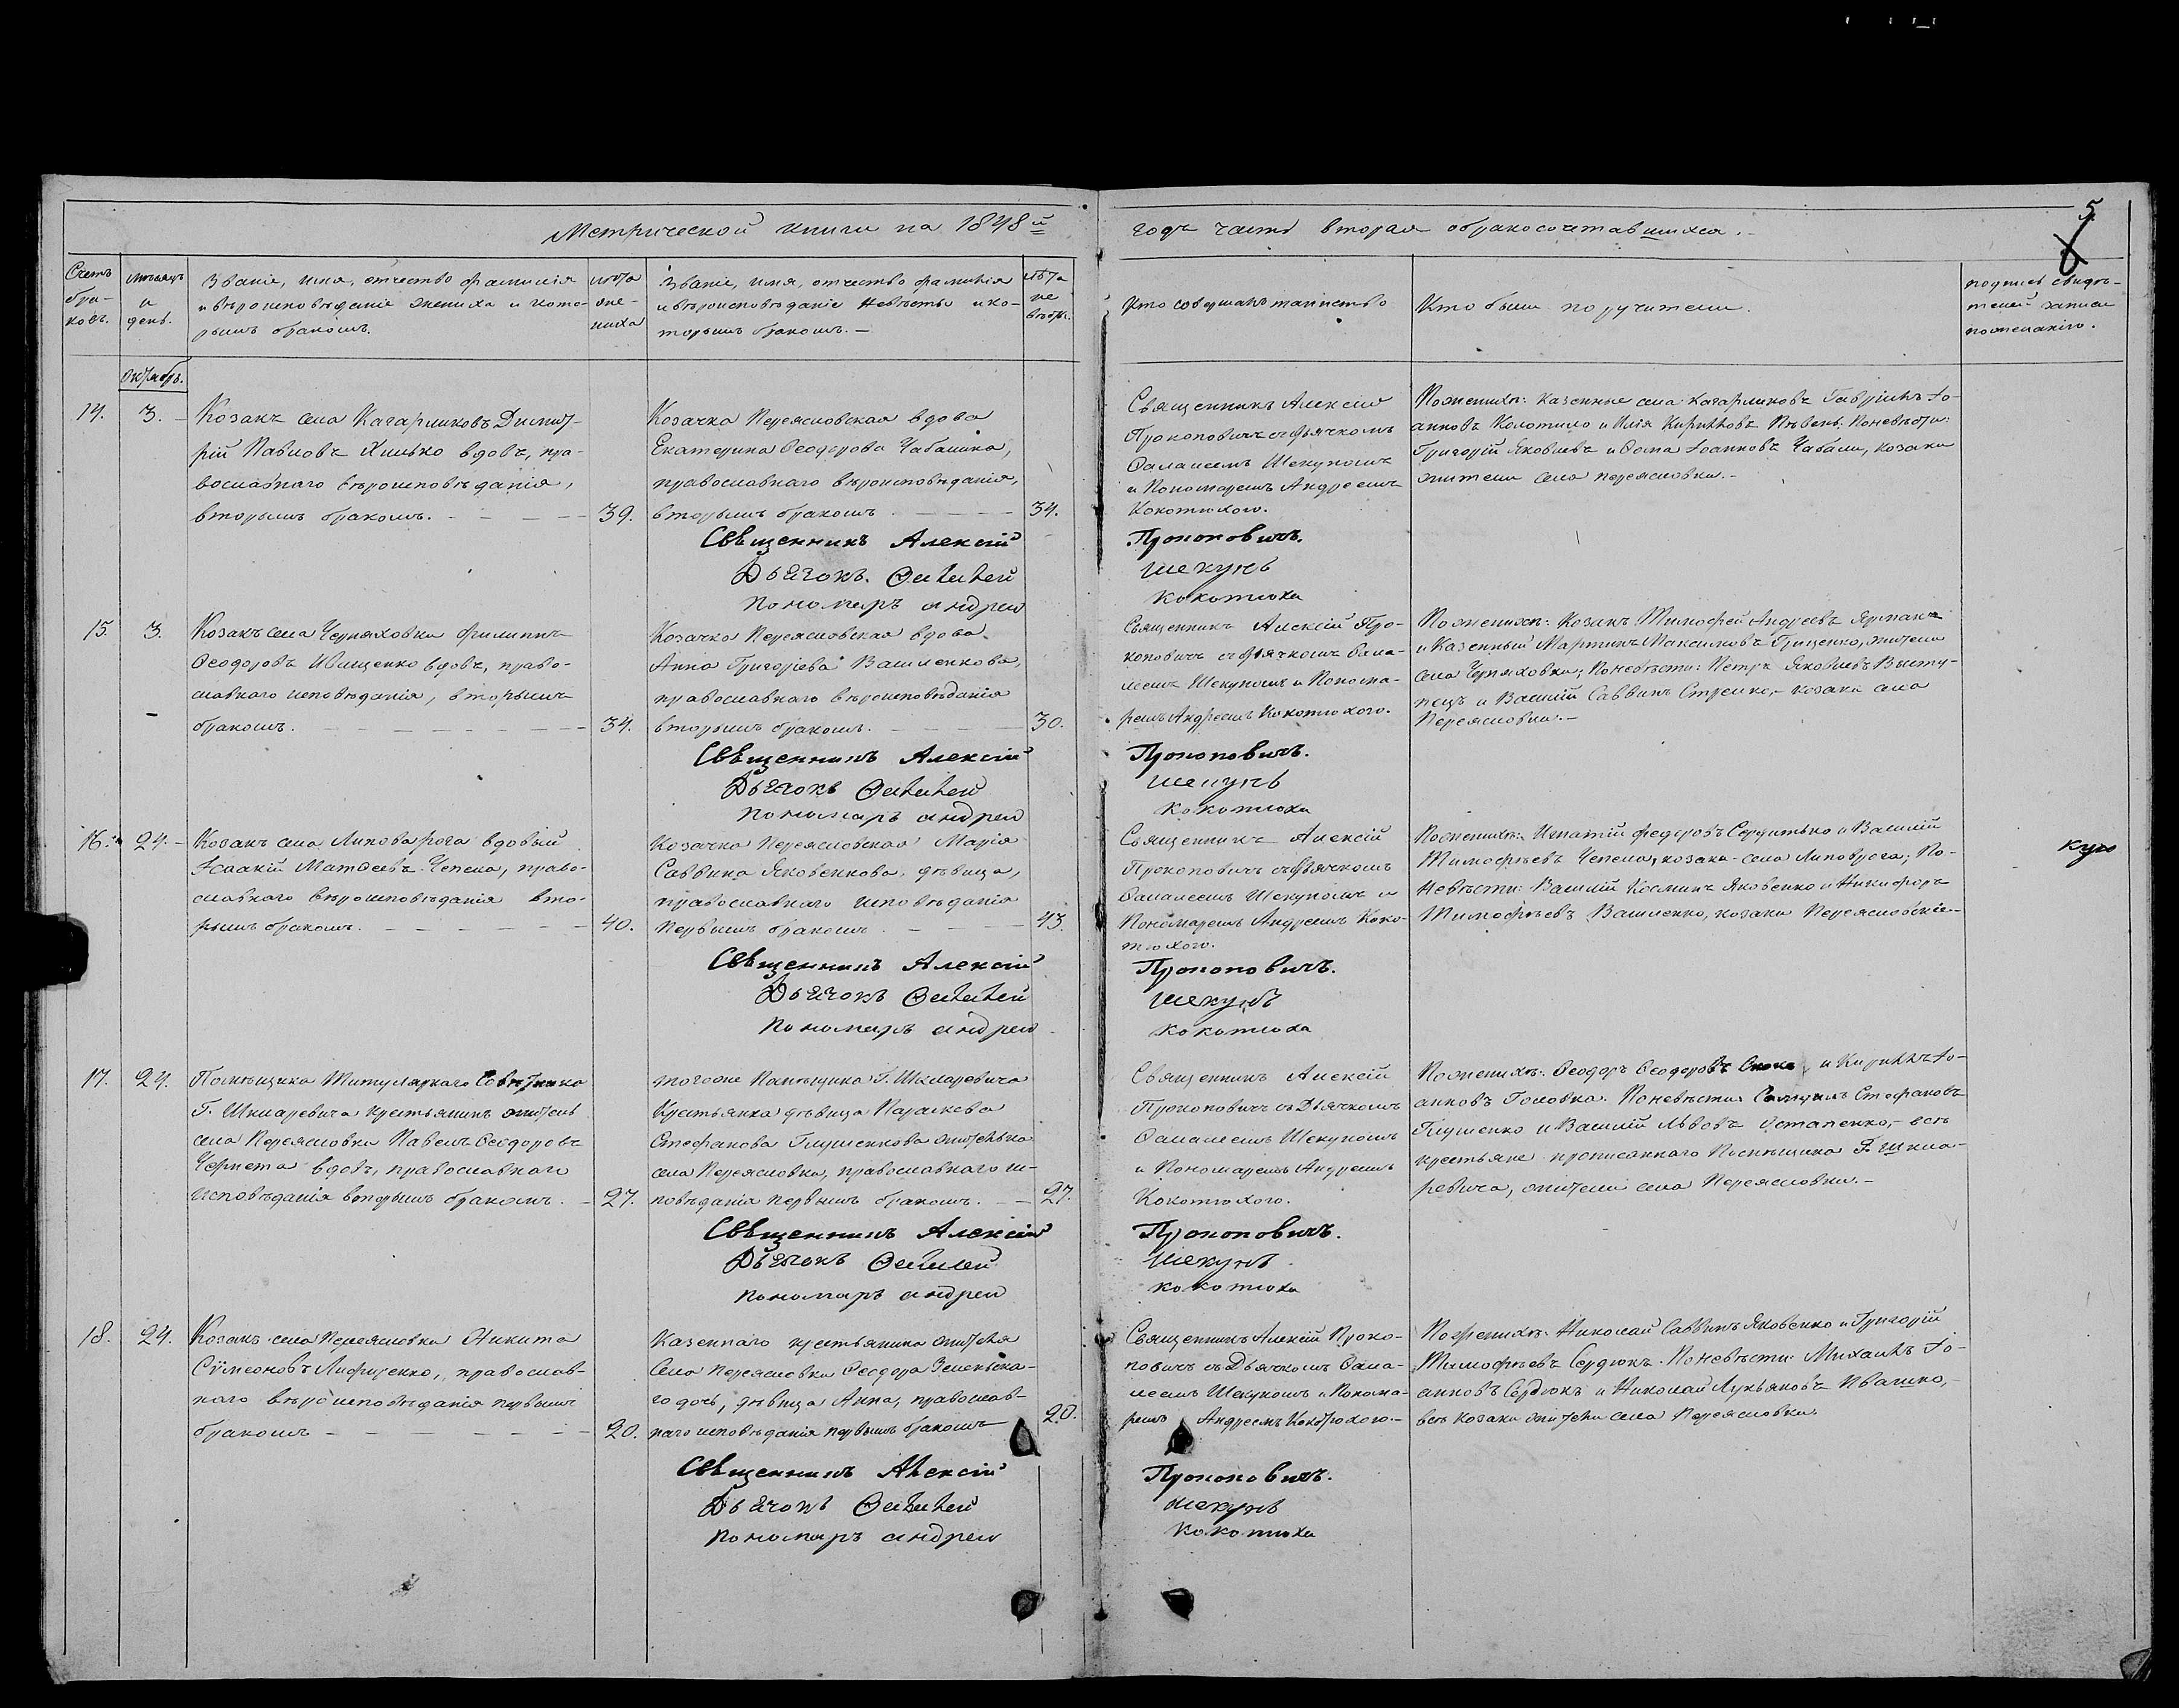 Метрической книги на 1848й
годъ часть вторая обракосочетавшихся.
5.
Счетъ бра-ковъ.
мѣсяцъ и день.
Званіе, имя, отчество фамилія
и вѣроисповѣданіе жениха и кото-
рымъ бракомъ.
лѣта же-ниха
Званіе, имя, отчество фамилія
и вѣроисповѣданіе невѣсты и ко-
торымъ бракомъ.
лѣта не вѣсты.
Кто совершалъ таинство
Кто были поручители.
подпись свидѣ-
телей записи
пожеланію.
Октябрь.
14.
3.
Козакъ села Кагарликовъ Димит-
рій Павловъ Хилько вдовъ, пра-
вославнаго вѣроисповѣданія,
вторымъ бракомъ.
39.
Козачка Переясловская вдова
Екатерина Ѳеодорова Чабаника,
православнаго вѣроисповѣданія,
вторымъ бракомъ
34.
Священникъ Алексій
Прокоповичъ съ Дьячкомъ
Ѳалалеемъ Шекуномъ
и Пономаремъ Андреемъ
Кокотюхого.
Пожениху: казенные села Кагарликовъ Гавріилъ Іо-
анновъ Колотило и Илія Кирилловъ Пѣвень; Поневѣсти:
Григорій Яковлевъ и Ѳома Іоанновъ Чабаны, козаки
жители села переясловки.
Свѣщенникъ Алексій
Прокоповичъ.
Дьячокъ Ѳалалей
шекунъ
пономаръ андреи
кокотюха
15.
3.
Козакъ села Черняховки Филиппъ
Ѳеодоровъ Иващенко вдовъ, право-
славнаго исповѣданія, вторымъ
бракомъ.
34.
Козачка Переясловская вдова
Анна Григоріева Василенкова,
православнаго вѣроисповѣданія
вторымъ бракомъ.
30.
Священникъ Алексій Про-
коповичъ съ Дьячкомъ Ѳала-
леемъ Шекуномъ и Понома-
ремъ Андреемъ Кокотюхого.
Пожениху: Козакъ Тимофей Андреевъ Ярмакъ
и Казенный Мартинъ Максимовъ Гриценко, жители
села Черняховки; Поневѣсти: Петръ Яковлевъ Высту-
пецъ и Василій Саввинъ козаки села
Переясловки.
Свѣщенникъ Алексій
Прокоповичъ.
Дьячокъ Ѳалалей
шекунъ
пономаръ андреи
кокотюха
16.
24.
Козакъ села Липоварога вдовый
Ісаакій Матѳеевъ Чепела, право-
славнаго вѣроисповѣданія вто-
рымъ бракомъ.
40.
Козачка Переясловская Марія
Саввина Яковенкова, дѣвица,
православнаго исповѣданія
первымъ бракомъ
43.
Священникъ Алексій
Прокоповичъ съ Дьячкомъ
Ѳалалеемъ Шекуномъ и
Пономаремъ Андреемъ Коко-
тюхого.
Пожениху: Игнатій Федоровъ и Василій
Тимофѣевъ Чепела, козаки села Липоврога; По-
невѣсти: Василій Косминъ Яковенко и Никифоръ
Тимофѣевъ Василенко, козаки Переясловскіе
Свѣщенникъ Алексій
Прокоповичъ.
Дьячокъ Ѳалалей
шекунъ
пономаръ андреи
кокотюха
17.
24.
Помѣщика Титулярнаго Совѣтника
Г. Шкляревича крестьянинъ житель
села Переясловки Павелъ Ѳеодоровъ
Чернета вдовъ, православнаго
исповѣданія вторымъ бракомъ.
27.
тогоже Помѣщика Г. Шкляревича
Крестьянка дѣвица Параскева
Стефанова Глушенкова жителька
села Переясловки, православнаго ис-
повѣданія первымъ бракомъ.
27.
Священникъ Алексій
Прокоповичъ съ Дьячкомъ
Ѳалалеемъ Шекуномъ
и Пономаремъ Андреемъ
Кокотюхого.
Пожениху: Ѳеодоръ Ѳеодоровъ и Кириллъ Іо-
анновъ Головка. Поневѣсти: Стефановъ
Глушенко и Василій Львовъ Остапенко, всѣ
крестьяне прописаннаго Помѣщика Г. Шкля-
ревича, жители села Переясловки.
Свѣщенникъ Алексій
Прокоповичъ.
Дьячокъ Ѳалалей
шекунъ
пономаръ андреи
кокотюха
18.
24.
Козакъ села Переясловки Никита
Сѵмеоновъ православ-
наго вѣроисповѣданія первымъ
бракомъ
20.
Казеннаго крестьянина жителя
села Переясловки Ѳеодора Зеленска-
го дочь, дѣвица Анна, православ-
наго исповѣданія первымъ бракомъ
20.
Священникъ Алексій Проко-
повичъ съ Дьячкомъ Ѳала-
леемъ Шекуномъ и Понома-
ремъ Андреемъ Кокотюхого.
Пожениху: Николай Саввинъ Яковенко и Григорій
Тимофѣевъ Сердюкъ. Поневѣсти: Михаилъ Іо-
анновъ Сердюкъ и Николай Лукьяновъ Ивашко,
всѣ козаки жители села Переясловки.
Свѣщенникъ Алексій
Прокоповичъ.
Дьячокъ Ѳалалей
шекунъ
пономаръ андреи
кокотюха